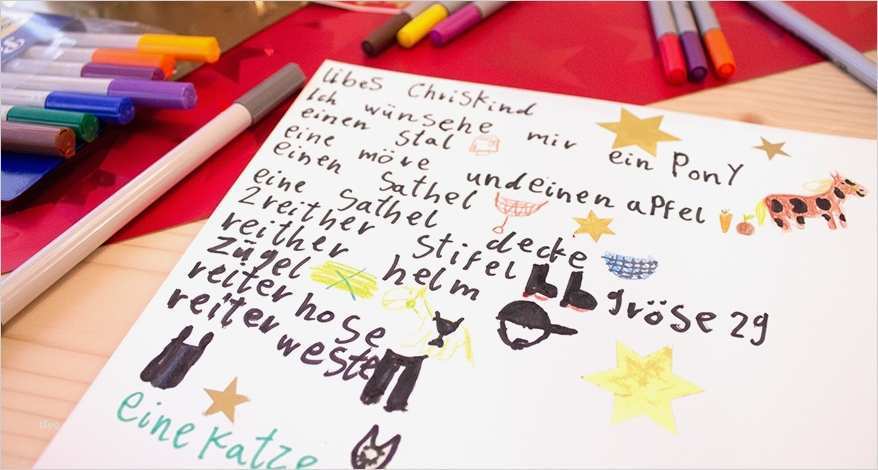 libes Chriskind
Ich wünsehe mir ein PonY
einen Stal
eine möre undeinen apfel
einen Sathel
eine Sathel decke
2 reither Stifel gröse 29
reither helm
Zügel
reiter hose
reiter weste
eine Katze